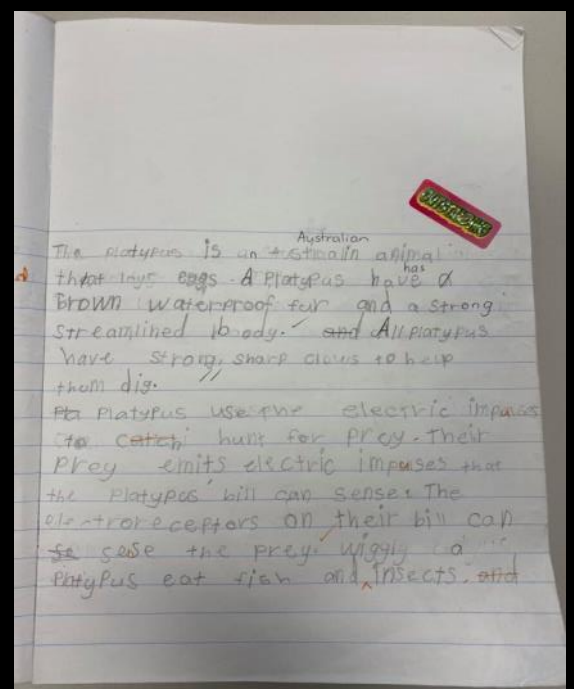 OUTSTANDING
Australian
The platypus is an Austrcalin animal
that lays eggs. A Platypus have has a
Brown waterproof fur and a strong
streamlined body. and All platypus
have strong, sharp claws to help
them dig.
Pla Platypus use the electric impulses
to catch hunt for prey. Their
prey emits electric impuses that
the platypus' bill can sense. The
electroreceptors on their bill can
se sese the prey. wiggly a
Platypus eat fish and insects. and